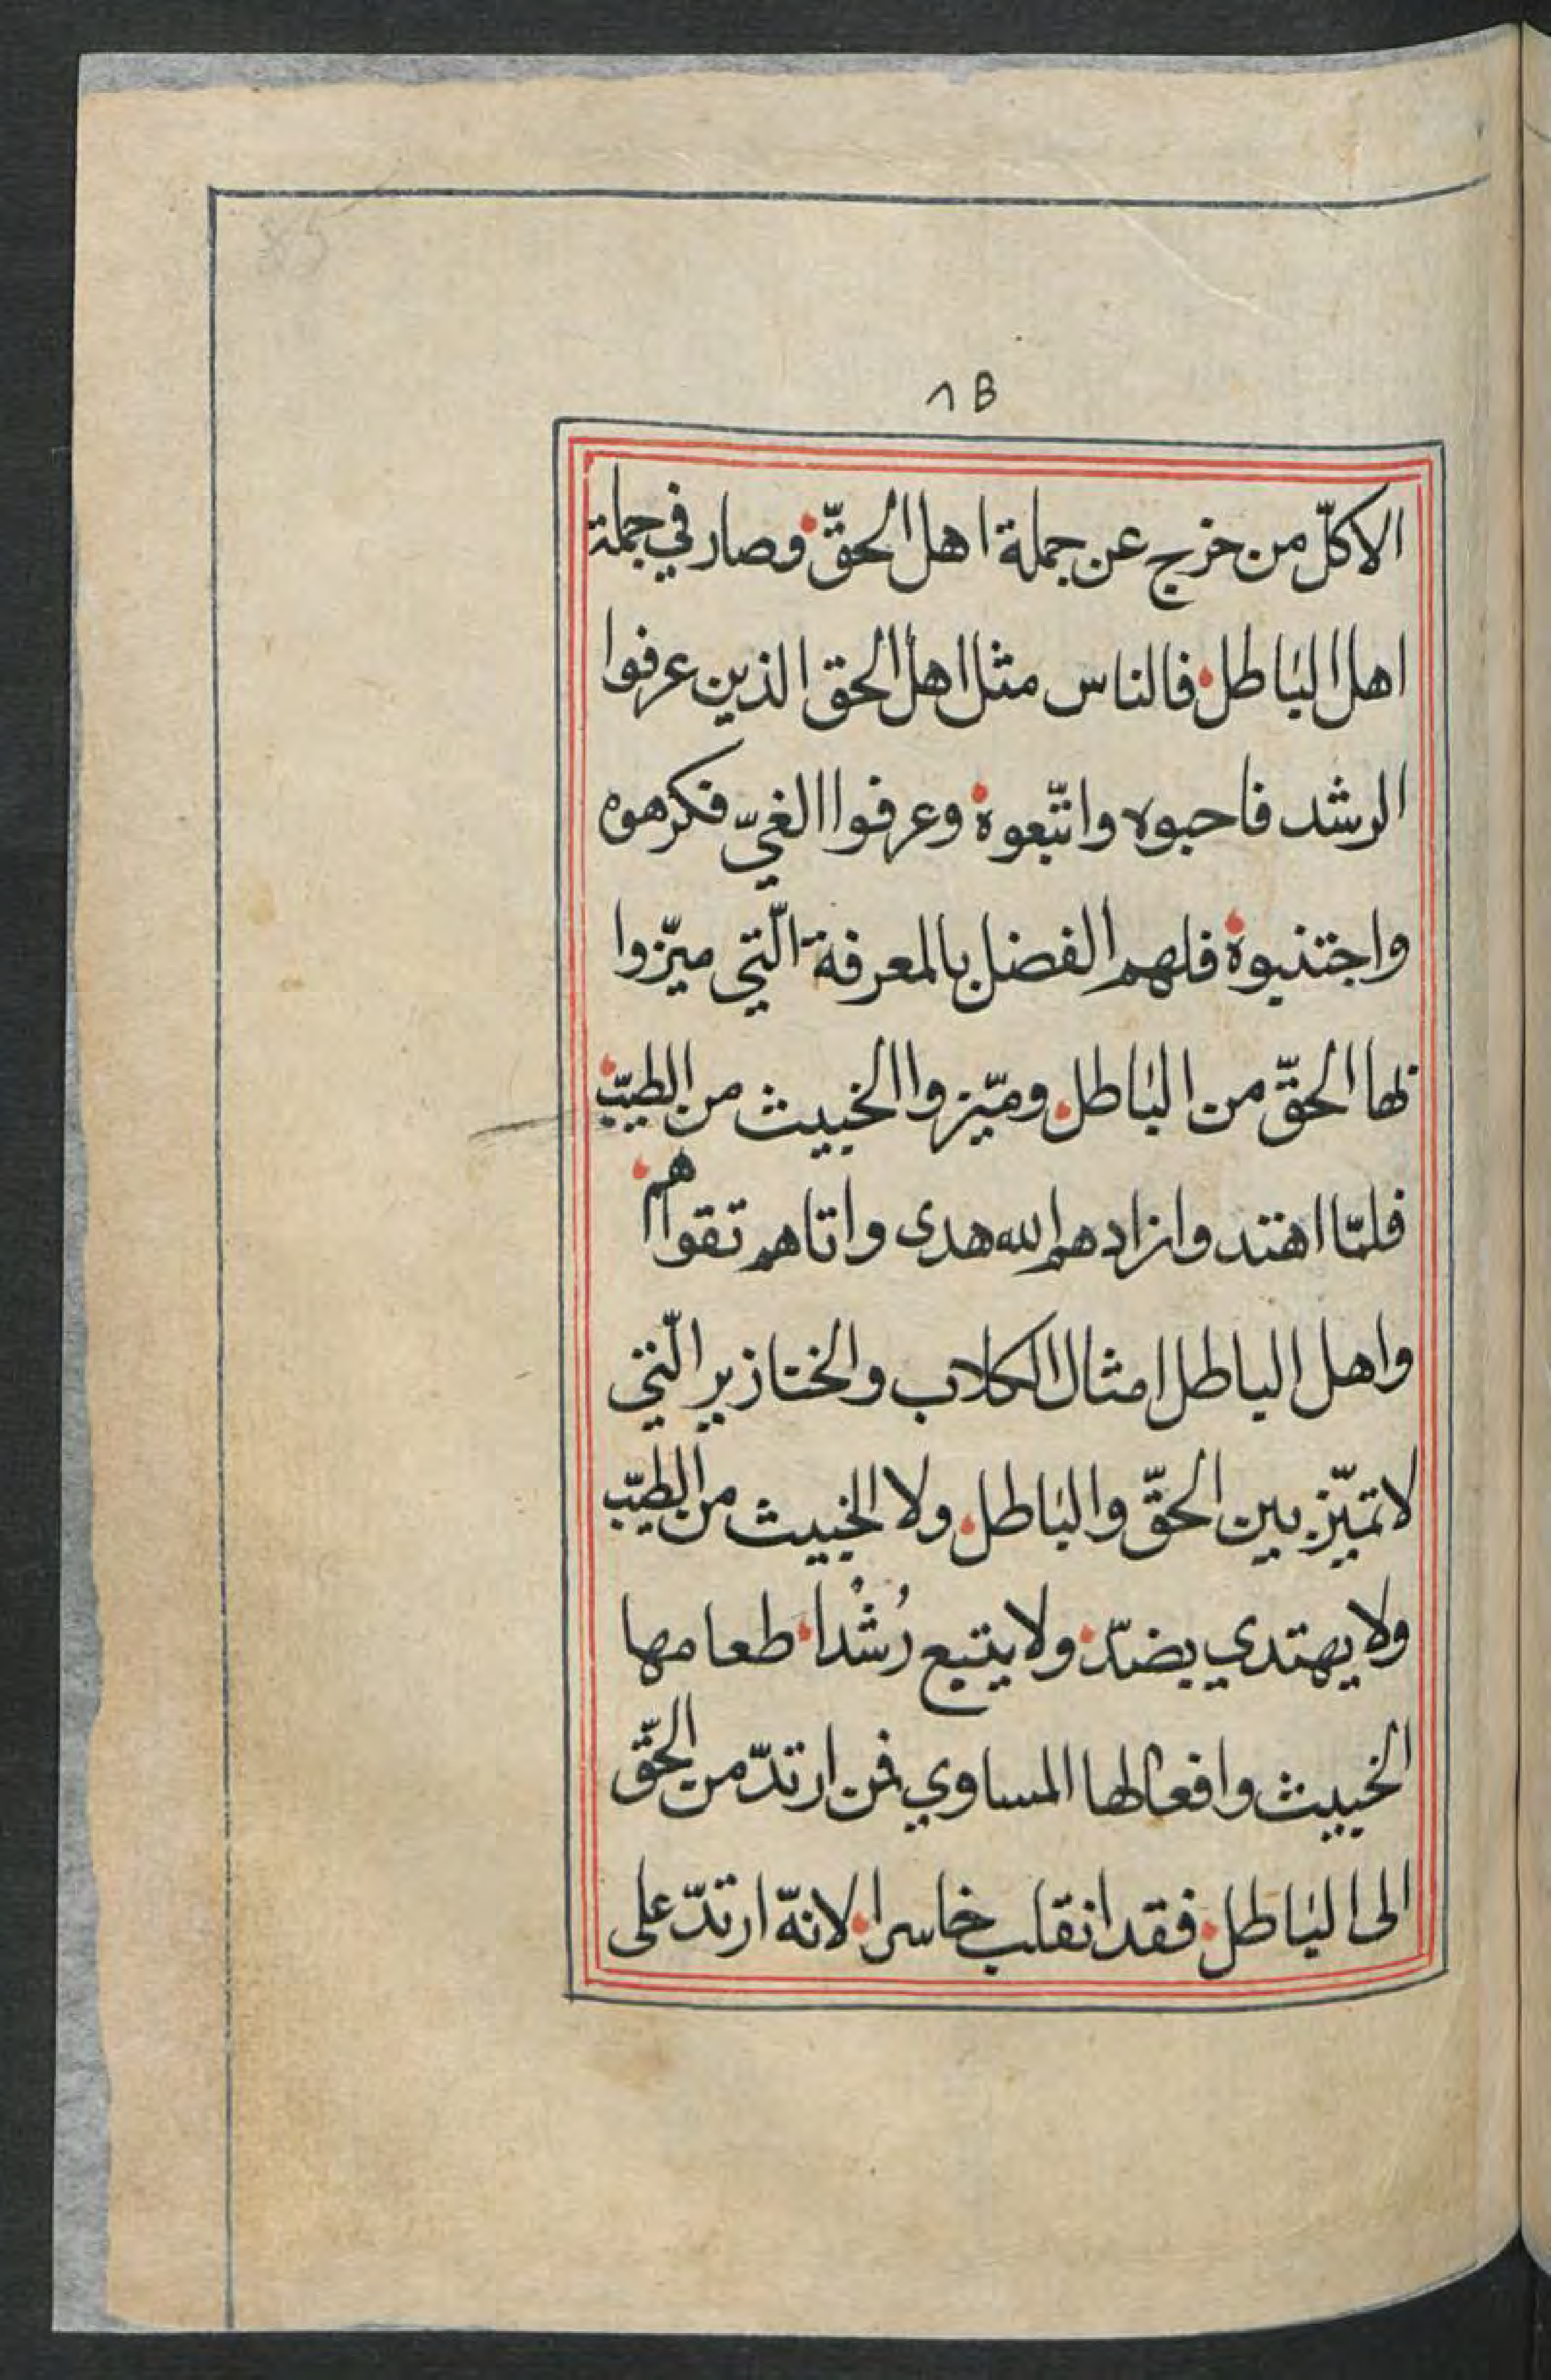 ٨٥
الاكلّ من خرج عن جملة اهل الحقّ وصار في جملة
اهل الباطل فالناس مثل اهل الحق الذين عرفوا
الرشد فاحبوه واتّبعوه وعرفوا الغيّ فكرهوه
واجتنبوه فلهم الفضل بالمعرفة الّتي ميّزوا
بها الحقّ من الباطل وميّزوا الخبيث من الطيّب
فلمّا اهتدوا زادهم الله هدى واتاهم تقواهم
واهل الباطل امثال الكلاب والخنازير الّتي
لا تميّز بين الحقّ والباطل ولا الخبيث من الطيّب
ولا يهتدي بضدّ ولا يتبع رُشْدا طعامها
الخبيث وافعالها المساوي فمن ارتدّ من الحقّ
الى الباطل فقد انقلب خاسرا لانّه ارتدّ على